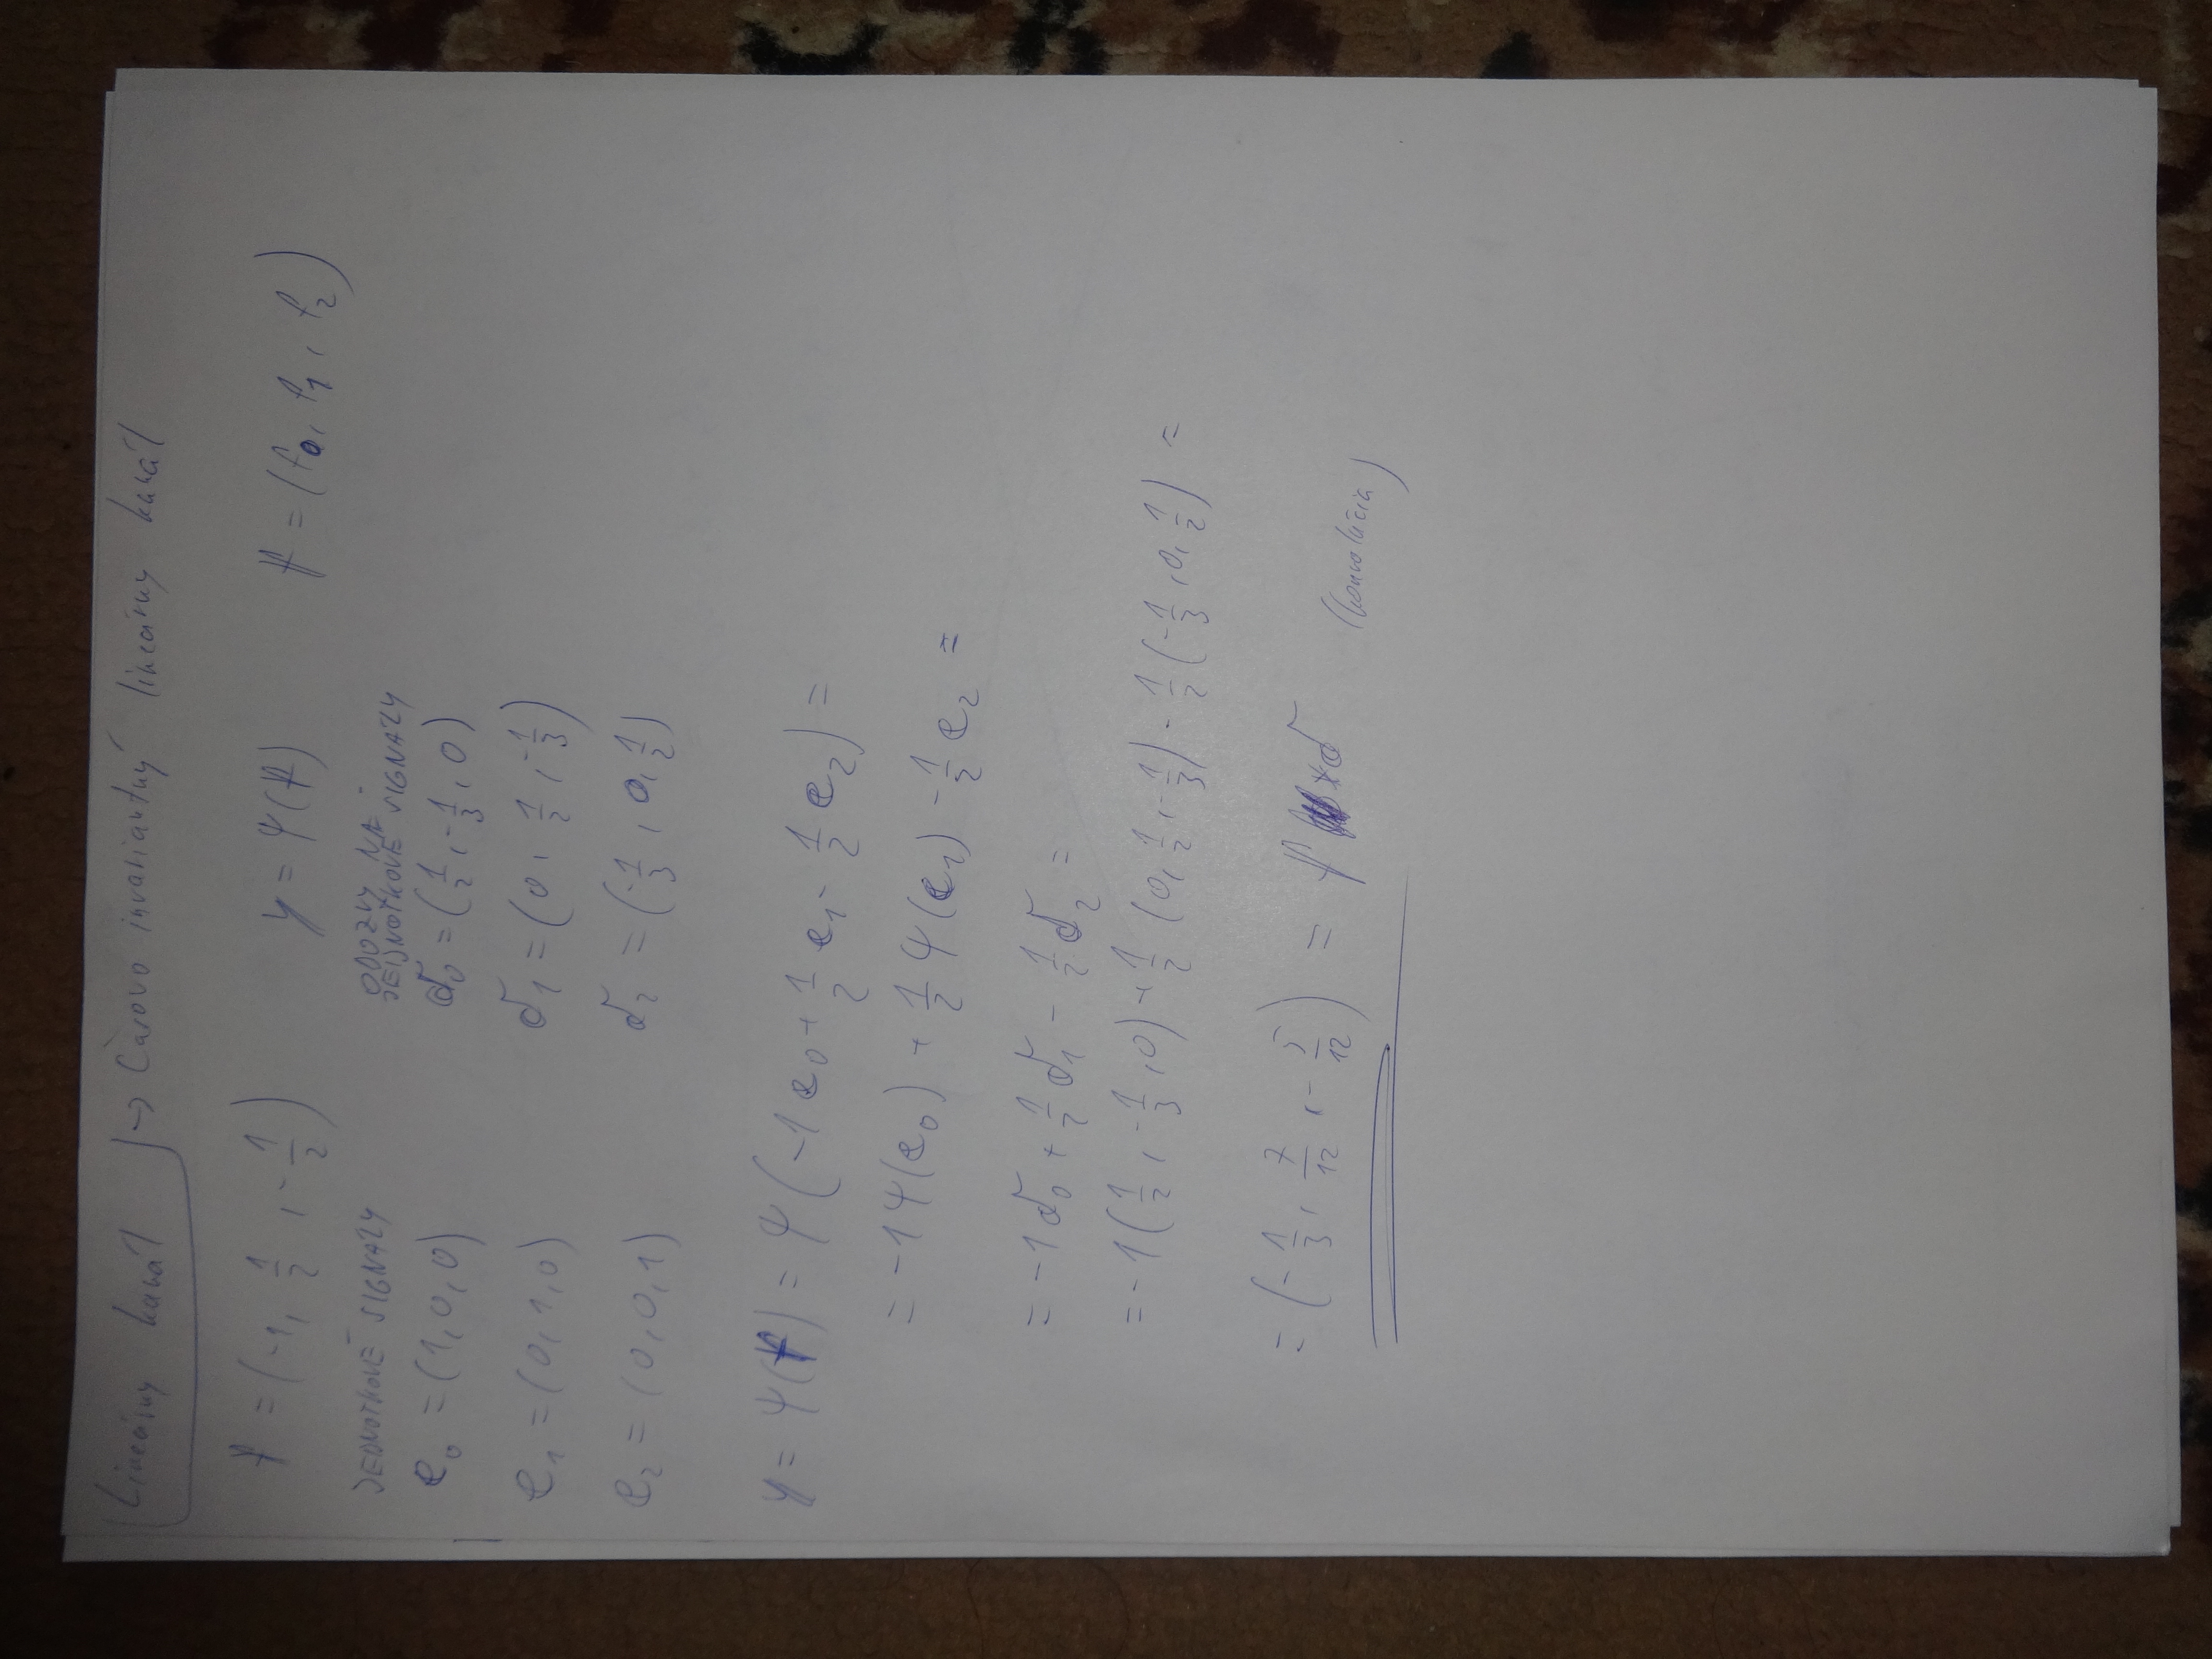 Lineárny kanál → Časovo invariantný lineárny kanál
f = (-1, 1/2, -1/2) y = ψ(f) f = (f₀, f₁, f₂)
JEDNOTKOVÉ SIGNÁLY
ODOZVY NA
JEDNOTKOVÉ SIGNÁLY
e₀ = (1,0,0) δ₀ = (1/2, -1/3, 0)
e₁ = (0,1,0) δ₁ = (0, 1/2, -1/3)
e₂ = (0,0,1) δ₂ = (-1/3, 0, 1/2)
y = ψ(f) = ψ(-1e₀ + 1/2 e₁ - 1/2 e₂) =
= -1ψ(e₀) + 1/2 ψ(e₁) - 1/2 e₂ =
= -1δ₀ + 1/2 δ₁ - 1/2 δ₂ =
= -1(1/2, -1/3, 0) + 1/2 (0, 1/2, -1/3) - 1/2 (-1/3, 0, 1/2) =
= (-1/3, 7/12, -5/12) = f * δ (konvolúcia)